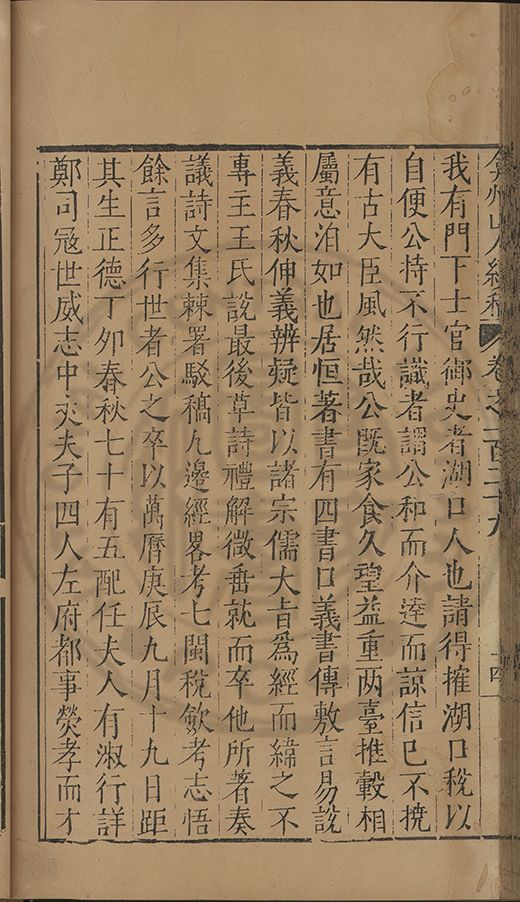 弇州山人續稿 卷之一百二十九 十四
我有門下士官御史者湖口人也請得搉湖口稅以
自便公持不行識者謂公和而介達而諒信巳不撓
有古大臣風然哉公旣家食久望益重两臺推轂相
屬意泊如也居恒著書有四書口義書傳敷言易說
義春秋伸義辨疑皆以諸宗儒大旨爲經而緯之不
專王王氏說最後草詩禮解徵垂就而卒他所著奏
議詩文集棘署駁稿九邊經畧考七閩稅歛考志悟
餘言多行世者公之卒以萬曆庚辰九月十九日距
其生正德丁夘春秋七十有五配任夫人有淑行詳
鄭司冦世威志中丈夫子四人左府都事熒孝而才